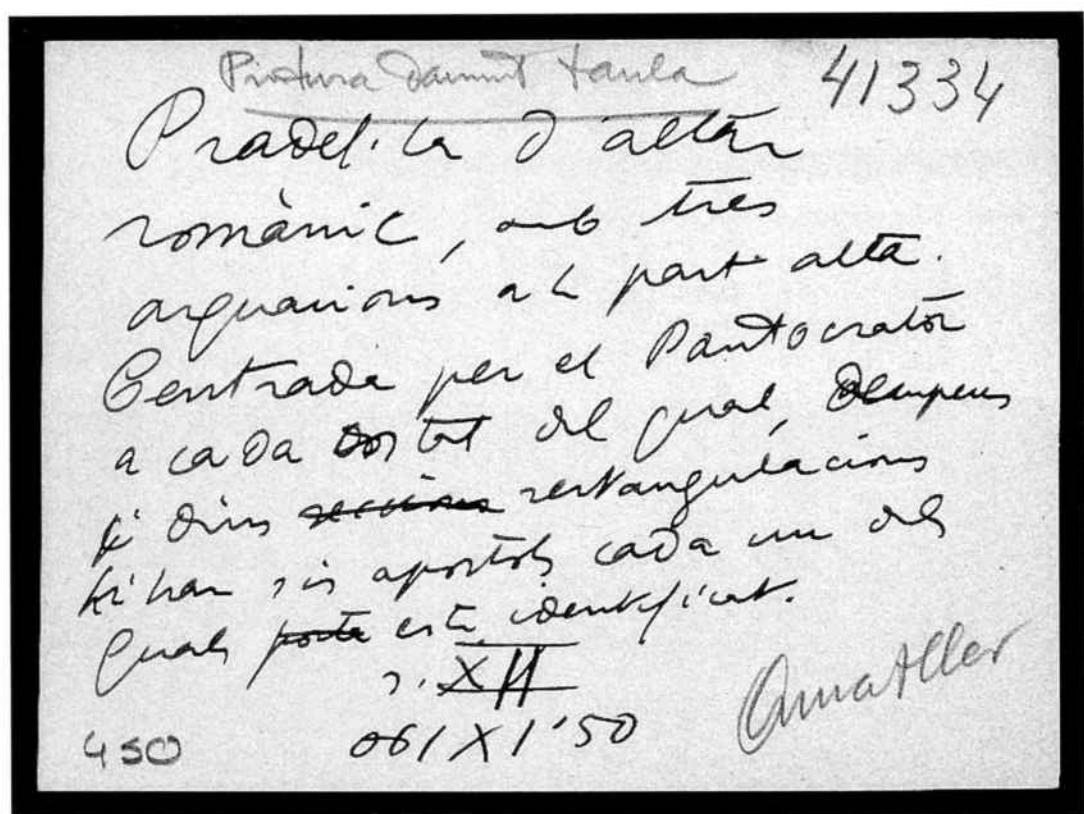 Pintura damunt taula
41334
Pradel·la d'altar
romànic, amb tres
arquacions a la part alta.
Centrada per el Pantocrator
a cada costat del qual, dempeus
i dins secciones rectangulacions
hi han sis apostols cada un dels
quals porta està identificat.
s. XII
061 X 1'50
450
Amatller